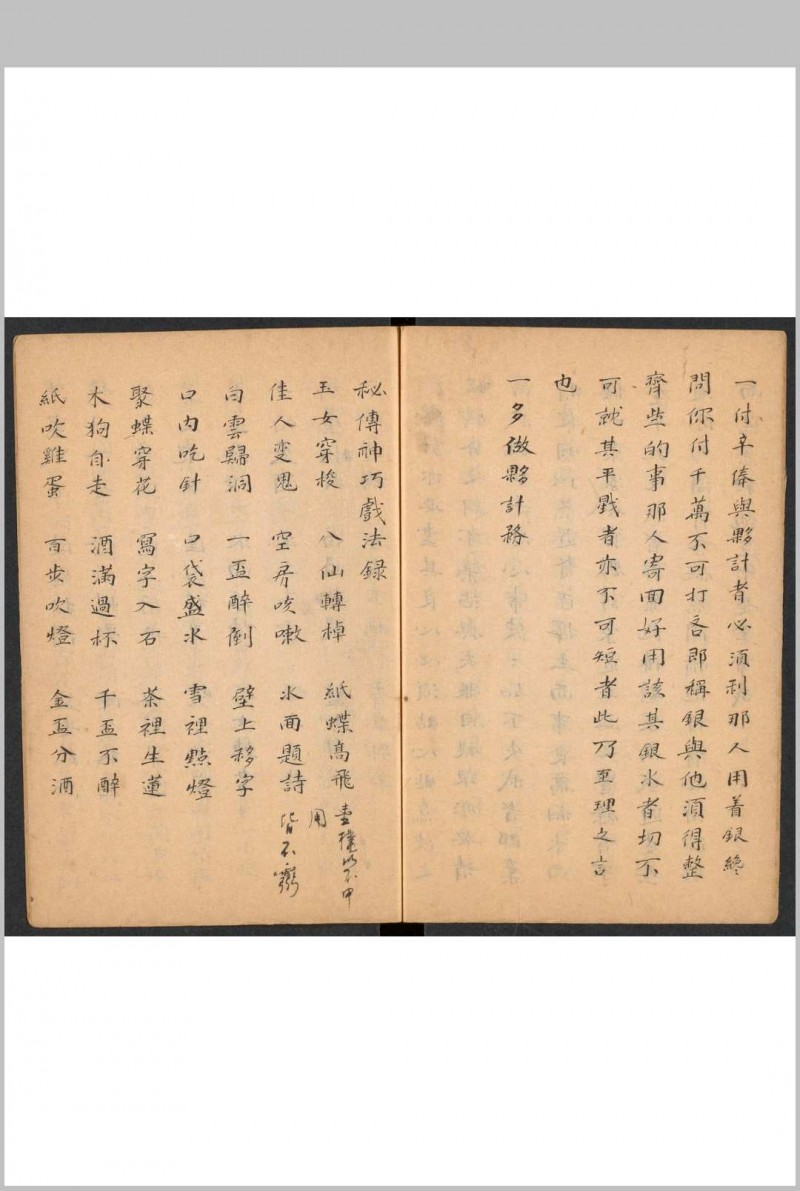 一付辛俸與夥計者必須利那人用着銀終
問你付千萬不可打吝即稱銀與他須得整
齊些的事那人寄回好用該其銀水者切不
可訛其平戥者亦不可短者此乃至理之言
也
一多做夥計務
秘傳神巧戲法録
玉女穿梭 八仙轉棹 紙蝶高飛
用
佳人变鬼 空房咳嗽 水面題詩 皆不
白雲歸洞 一盃醉倒 壁上移字
口内吃針 口袋盛水 雪裡點燈
聚蝶穿花 寫字入石 茶裡生蓮
木狗自走 酒滿過杯 千盃不醉
紙吹雞蛋 百步吹燈 金盃分酒